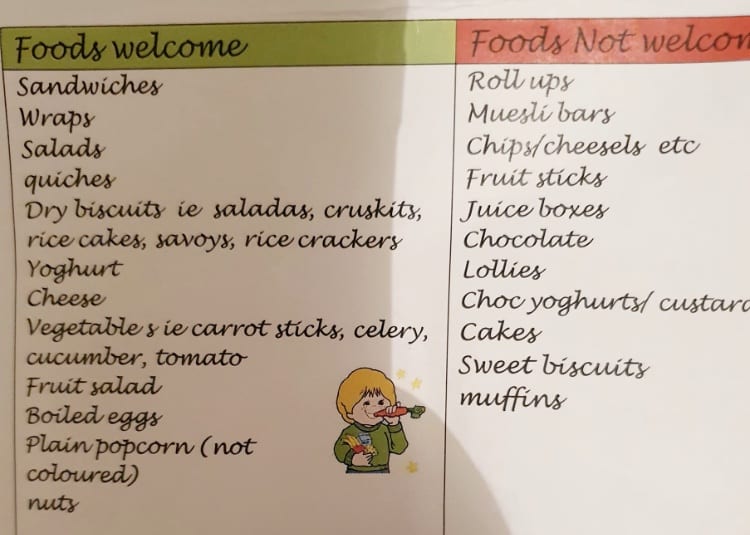 Foods welcome
Sandwiches
Wraps
Salads
quiches
Dry biscuits ie saladas, cruskits,
rice cakes, savoys, rice crackers
Yoghurt
Cheese
Vegetable s ie carrot sticks, celery,
cucumber, tomato
Fruit salad
Boiled eggs
Plain popcorn (not
coloured)
nuts
Foods Not
Roll ups
Muesli bars
Chips/cheesels etc
Fruit sticks
Juice boxes
Chocolate
Lollies
Choc yoghurts/
Cakes
Sweet biscuits
muffins